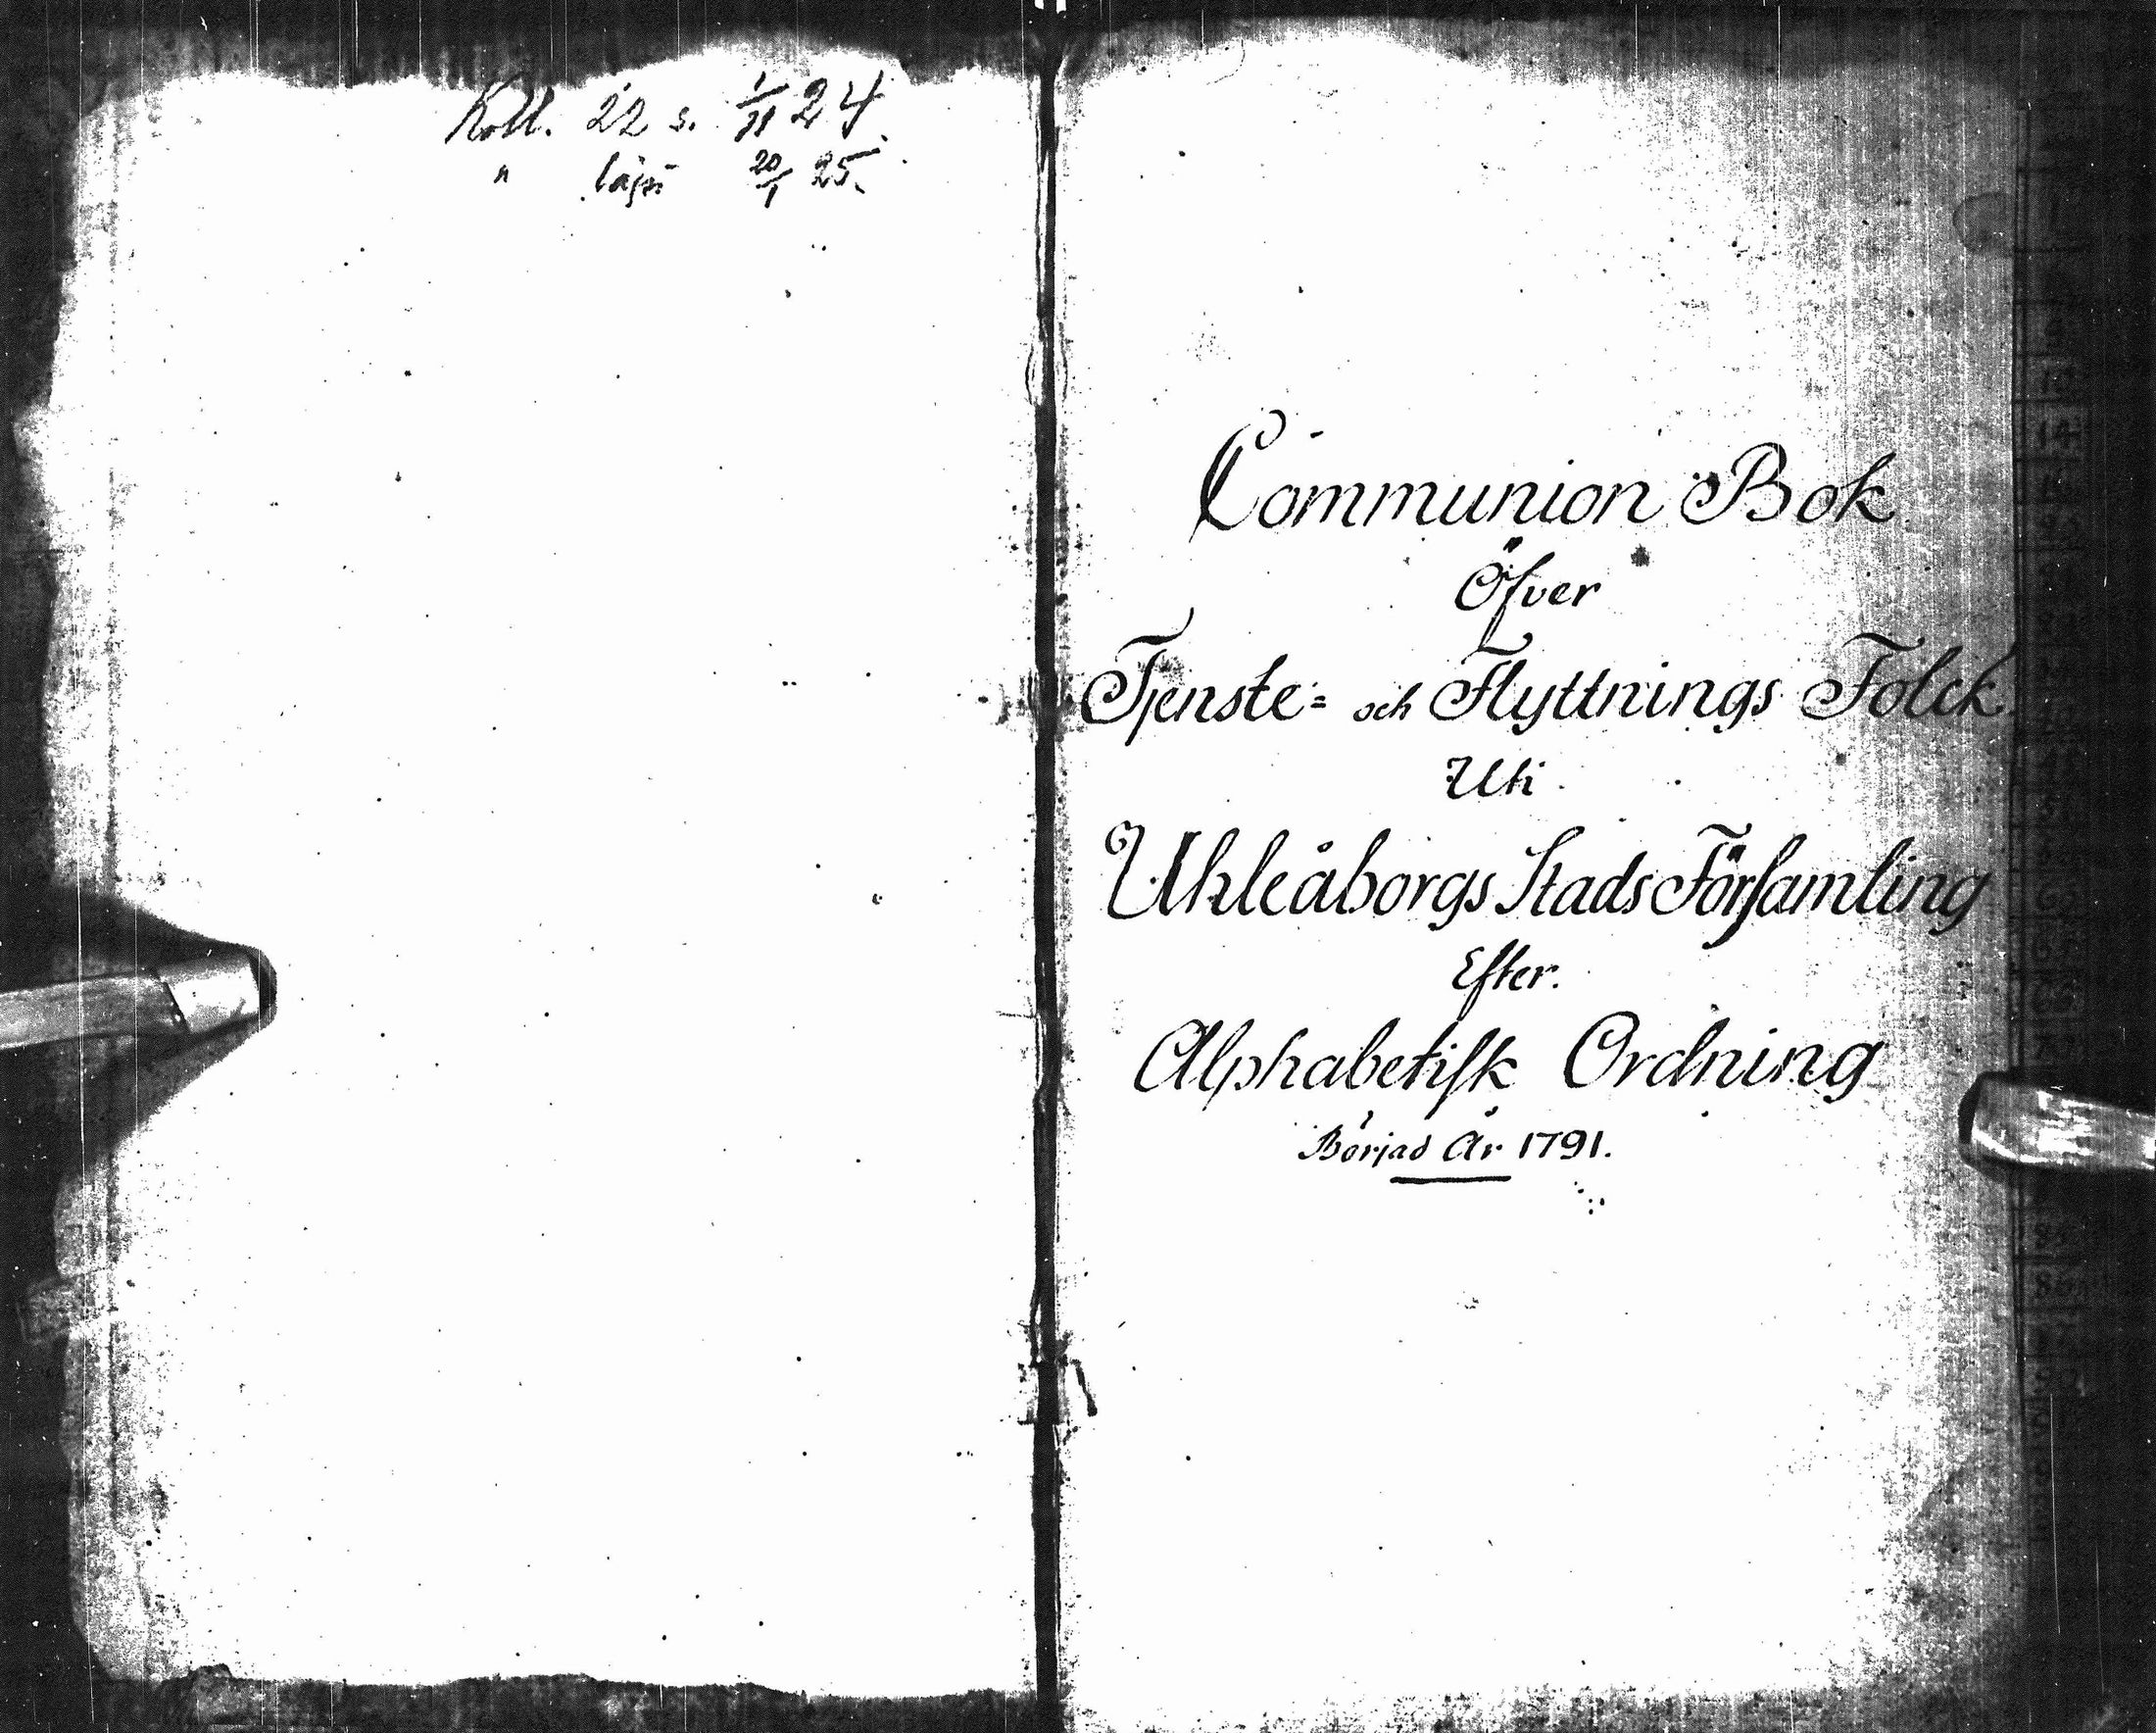 Koll. 22 s. 1/11 24.
" 20/1 25.
Communion Bok
Öfver
Tjenste= och Flyttnings Folck
Uti
Uhleåborgs Stads Församling
Efter.
Alphabetisk Ordning
Börjad År 1791.